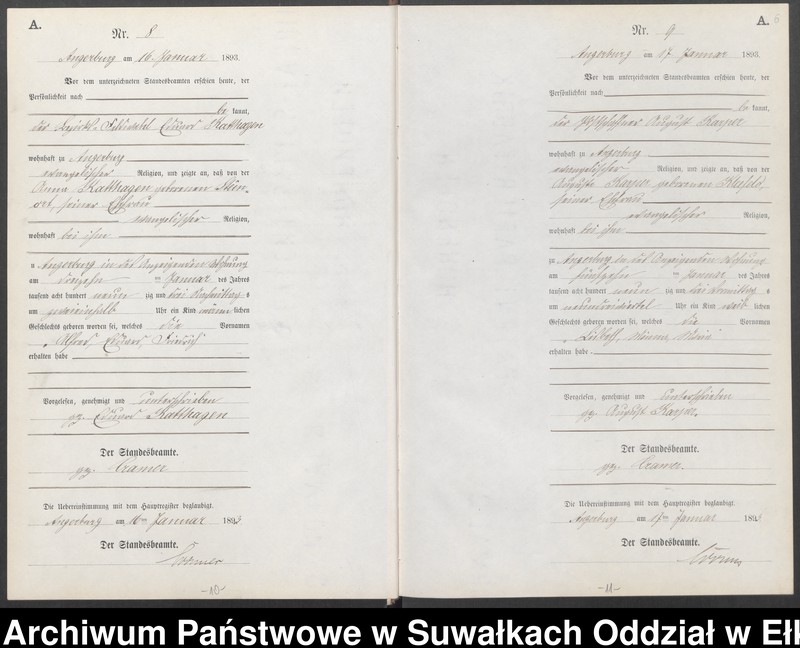 A.
Nr. 8
Angerburg am 16. Januar 1893.
Vor dem unterzeichneten Standesbeamten erschien heute, der
Persönlichkeit nach
be kannt,
der Feldwebel Eduard Katthagen
wohnhaft zu Angerburg
evangelischer Religion, und zeigte an, daß von der
Anna Katthagen geborenen Stein-
ort, seiner Ehefrau
evangelischer Religion,
wohnhaft bei ihm
zu Angerburg in des Anzeigenden Wohnung
am Januar des Jahres
tausend acht hundert neun zig und drei Nachmittags
um Uhr ein Kind männ lichen
Geschlechts geboren worden sei, welches die Vornamen
Alfred, Eduard, Friedrich
erhalten habe
Vorgelesen, genehmigt und unterschrieben
gz. Eduard Katthagen
Der Standesbeamte.
gz. Cramer
Die Uebereinstimmung mit dem Hauptregister beglaubigt.
Angerburg am 16ten Januar 1893
Der Standesbeamte.
Cramer
-10-
A. 6
Nr. 9
Angerburg am 17 Januar 1893.
Vor dem unterzeichneten Standesbeamten erschien heute, der
Persönlichkeit nach
be kannt,
der August Kayser
wohnhaft zu Angerburg
evangelischer Religion, und zeigte an, daß von der
Auguste Kayser geborenen
seiner Ehefrau
evangelischer Religion,
wohnhaft bei ihm
zu Angerburg in des Anzeigenden Wohnung
am fünfzehn ten Januar des Jahres
tausend acht hundert neun zig und drei Vormittags
um neundreiviertel Uhr ein Kind weib lichen
Geschlechts geboren worden sei, welches die Vornamen
Minna, Marie
erhalten habe
Vorgelesen, genehmigt und unterschrieben
gz. August Kayser.
Der Standesbeamte.
gz. Cramer.
Die Uebereinstimmung mit dem Hauptregister beglaubigt.
Angerburg am 17ten Januar 1893
Der Standesbeamte.
Cramer
-11-
Archiwum Państwowe w Suwałkach Oddział w Ełk